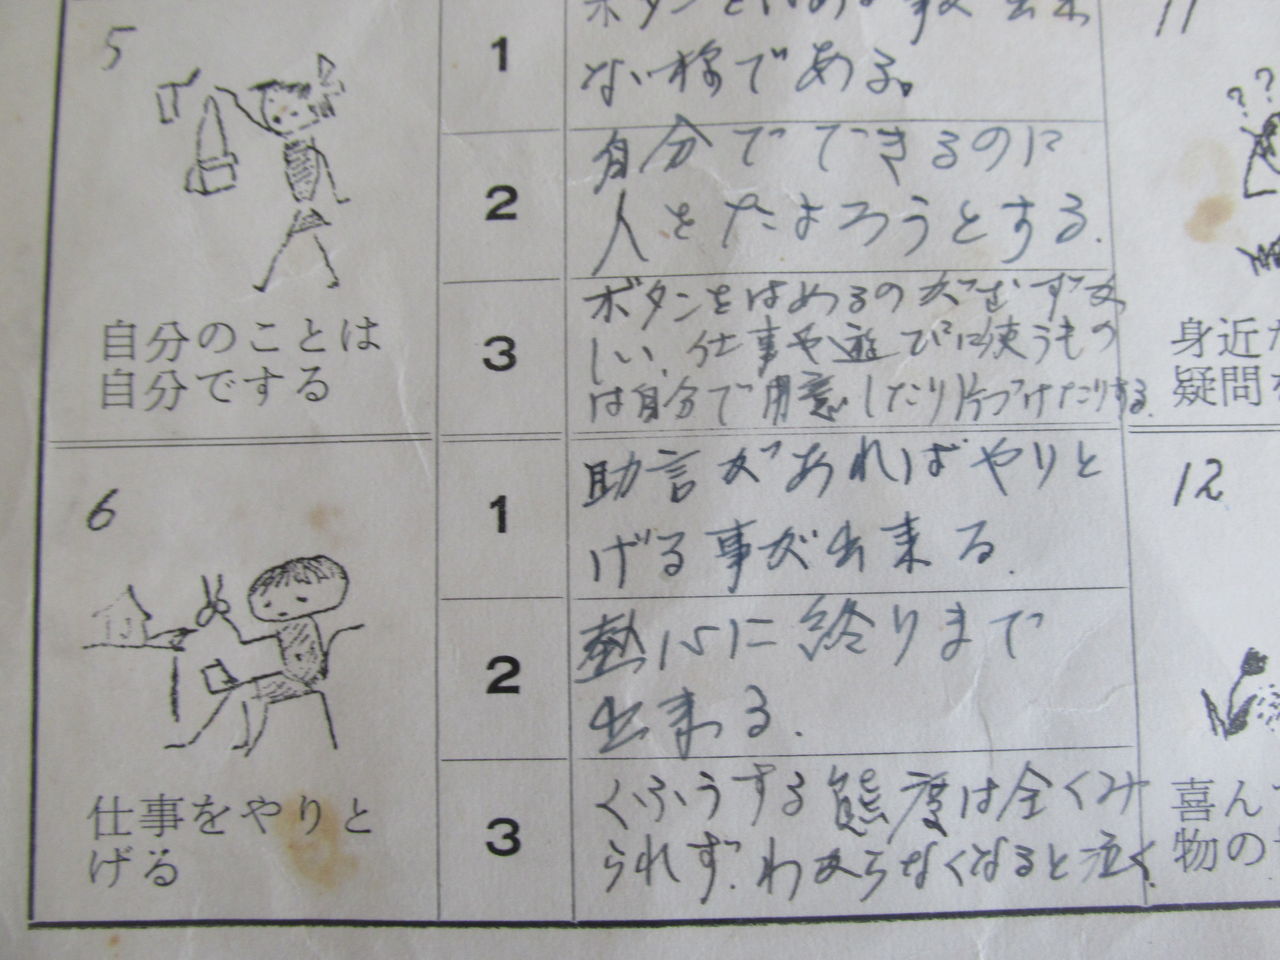 5
自分のことは
自分でする
1
ない様である。
2
自分でできるのに
人をたよろうとする.
3
ボタンをはめるのがむずか
しい、仕事や遊びに使うもの
は自分で用意したり片づけたりする.
6
仕事をやりと
げる
1
助言があればやりと
げる事が出来る.
2
熱心に終りまで
出来る.
3
くふうする態度は全くみ
られず.わからなくなると泣く.
11
??
身近
疑問
12
喜ん
物の